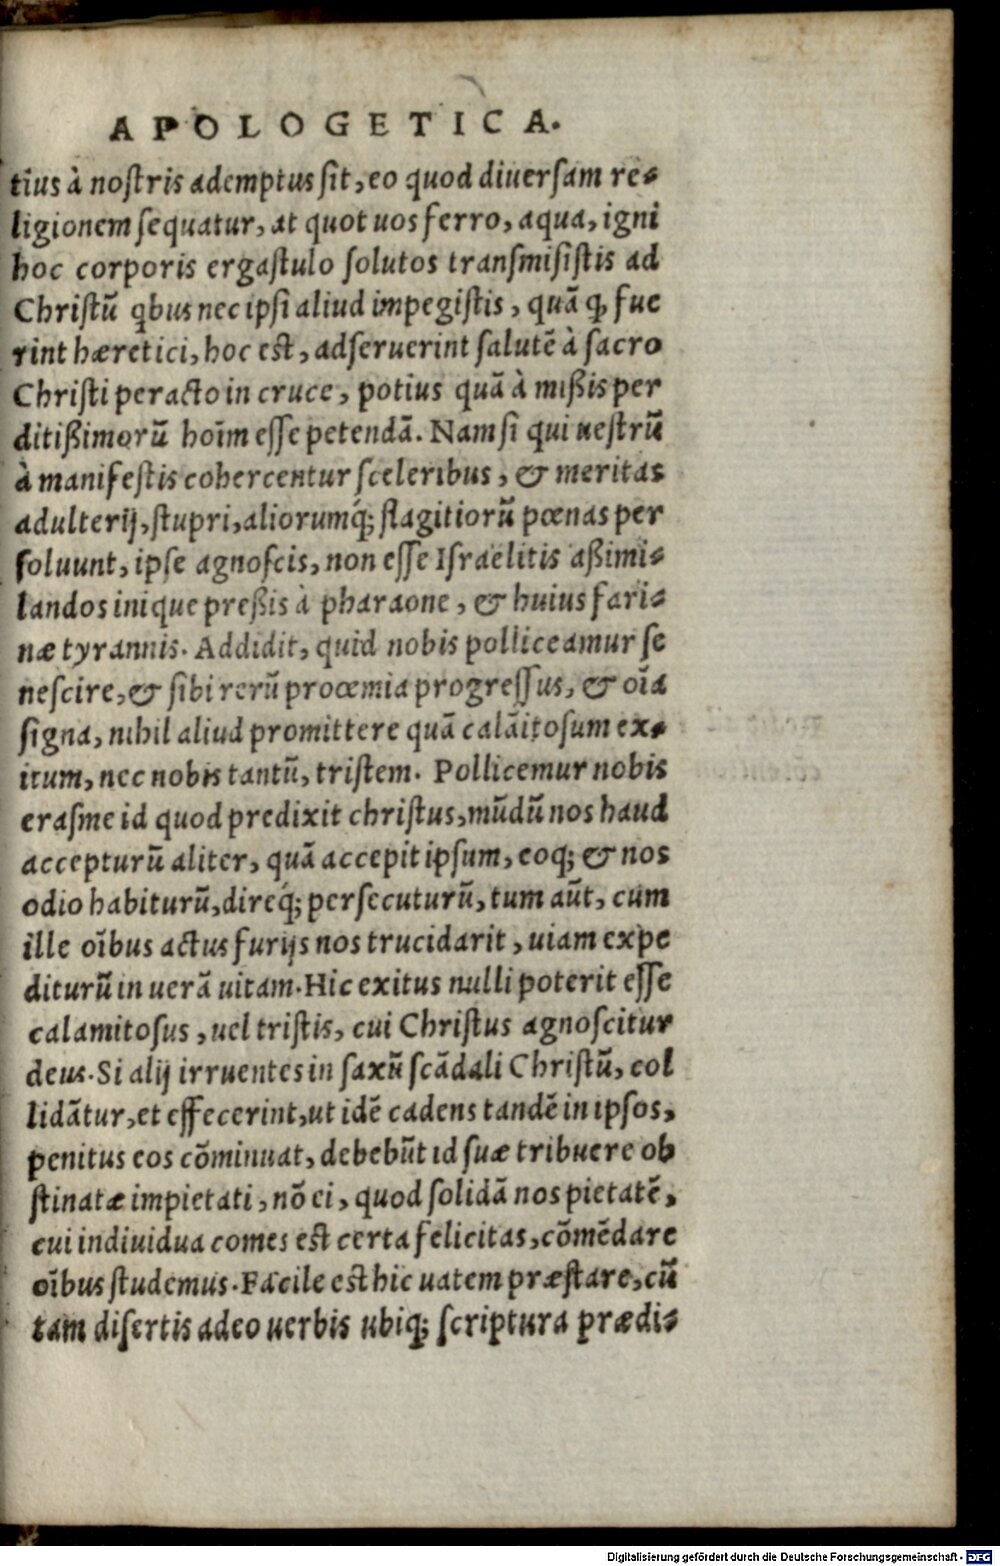 APOLOGETICA.
tius à nostris ademptus sit, eo quod diuersam re-
ligionem sequatur, at quot uos ferro, aqua, igni
hoc corporis ergastulo solutos transmisistis ad
Christũ qbus nec ipsi aliud impegistis, quã ꝙ fue
rint hæretici, hoc est, adseruerint salutẽ à sacro
Christi peracto in cruce, potius quã à mißis per
ditißimorũ hoĩm esse petendã. Nam si qui uestrũ
à manifestis cohercentur sceleribus, & meritas
adulterij, stupri, aliorumq́; flagitiorũ pœnas per
soluunt, ipse agnoscis, non esse Israelitis aßimi-
landos inique preßis à pharaone, & huius fari-
næ tyrannis. Addidit, quid nobis polliceamur se
nescire, & sibi rerũ proœmia progressus, & oĩa
signa, nihil aliud promittere quã calãitosum ex-
itum, nec nobis tantũ, tristem. Pollicemur nobis
erasme id quod predixit christus, mũdũ nos haud
accepturũ aliter, quã accepit ipsum, eoq; & nos
odio habiturũ, direq́; persecuturũ, tum aũt, cum
ille oĩbus actus furijs nos trucidarit, uiam expe
diturũ in uerã uitam. Hic exitus nulli poterit esse
calamitosus, uel tristis, cui Christus agnoscitur
deus. Si alij irruentes in saxũ scãdali Christũ, col
lidãtur, et effecerint, ut idẽ cadens tandẽ in ipsos,
penitus eos cõminuat, debebũt id suæ tribuere ob
stinatæ impietati, nõ ei, quod solidã nos pietatẽ,
cui indiuidua comes est certa felicitas, cõmẽdare
oĩbus studemus. Facile est hic uatem præstare, cũ
tam disertis adeo uerbis ubiq; scriptura prædi-
Digitalisierung gefördert durch die Deutsche Forschungsgemeinschaft - DFG